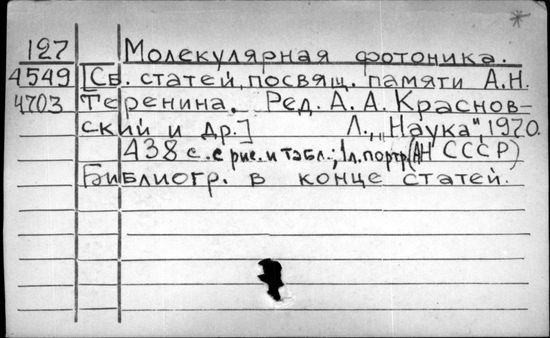 127 Молекулярная фотоника.
4549 [Сб. статей, посвящ. памяти А.Н.
4703 Теренина. Ред. А. А. Краснов-
ский и др.] Л., „Наука", 1970.
438 с. с рис. и табл.; 1л. портр. (АН СССР)
Библиогр. в конце статей.